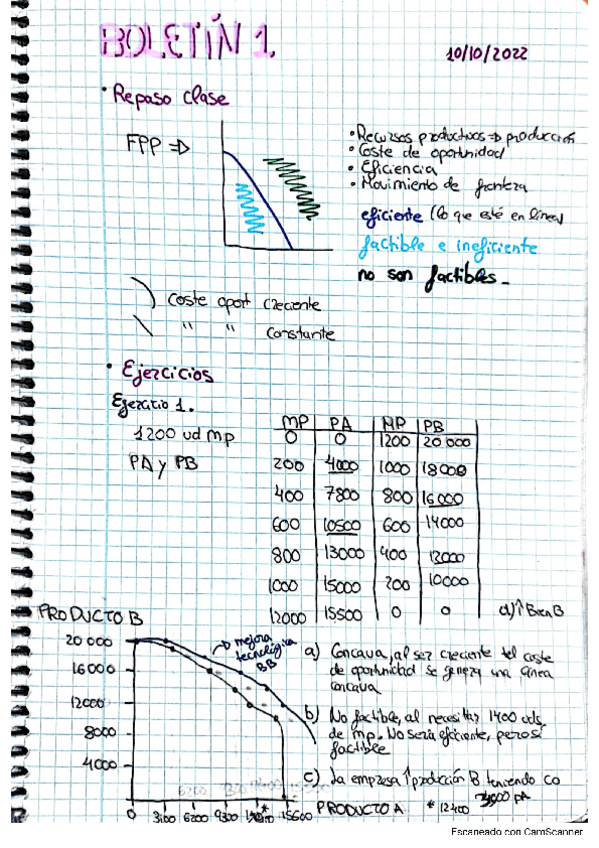 BOLETÍN 1.
10/10/2022
• Repaso clase
FPP ⇒
• Recursos productivos ⇒ producción
• Coste de oportunidad
• Eficiencia
• Movimiento de frontera
eficiente (Lo que esté en línea)
factible e ineficiente
no son factibles.
Coste oport creciente
" " constante
• Ejercicios
Ejercicio 1.
1200 ud mp
PA y PB
MP PA MP PB
0 0 1200 20 000
200 4000 1000 18000
400 7800 800 16000
600 10500 600 14000
800 13000 400 12000
1000 15000 200 10000
12000 15500 0 0
d) ↑ B en B
PRODUCTO B
20 000
16000
12000
8000
4000
0
mejora
tecnológica
BB
6200 9300
3100 6200 9300 15500
PRODUCTO A
* 12400
a) Concava, al ser creciente el coste
de oportunidad se genera una línea
concava
b) No factible, al necesitar 1400 uds.
de mp. No será eficiente, pero sí
factible
c) La empresa ↑ producción B teniendo co
PA
Escaneado con CamScanner